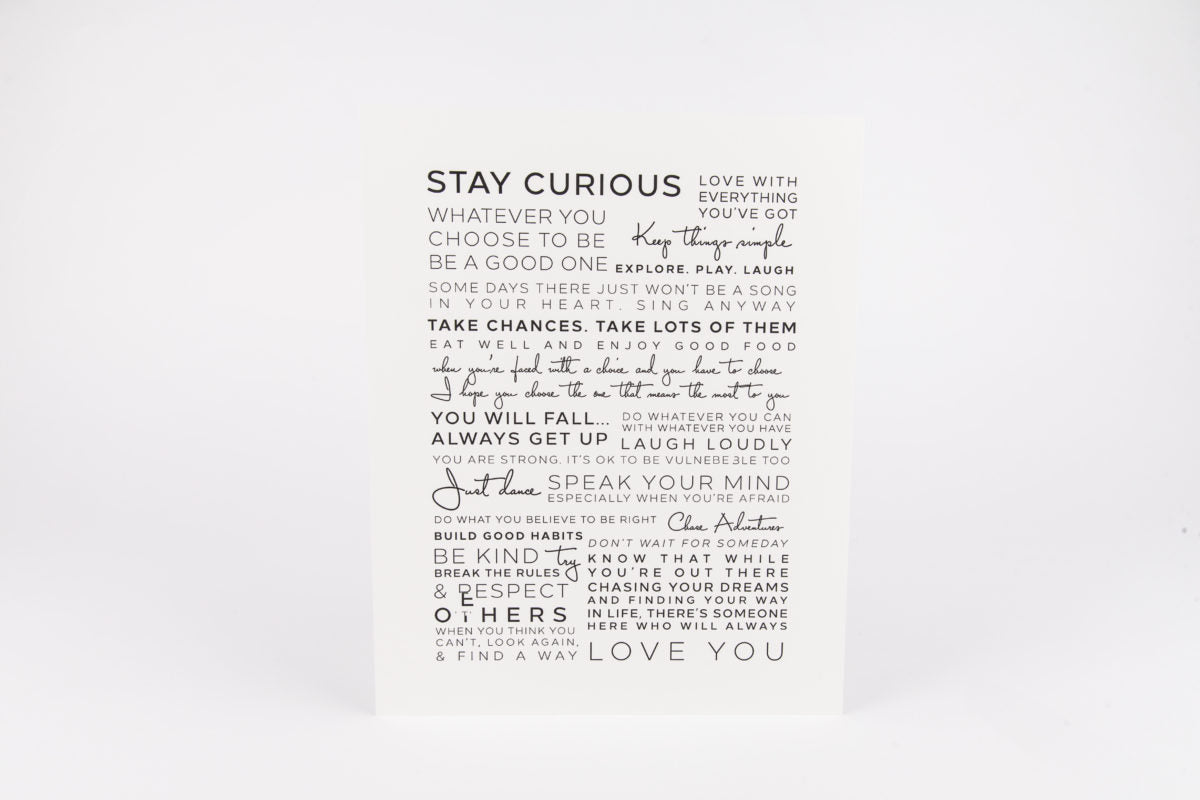 STAY CURIOUS
LOVE WITH
EVERYTHING
YOU'VE GOT
WHATEVER YOU
CHOOSE TO BE
BE A GOOD ONE
Keep things simple
EXPLORE. PLAY. LAUGH
SOME DAYS THERE JUST WON'T BE A SONG
IN YOUR HEART. SING ANYWAY
TAKE CHANCES. TAKE LOTS OF THEM
EAT WELL AND ENJOY GOOD FOOD
when you're faced with a choice and you have to choose
I hope you choose the one that means the most to you
YOU WILL FALL...
ALWAYS GET UP
DO WHATEVER YOU CAN
WITH WHATEVER YOU HAVE
LAUGH LOUDLY
YOU ARE STRONG. IT'S OK TO BE TOO
Just dance
SPEAK YOUR MIND
ESPECIALLY WHEN YOU'RE AFRAID
DO WHAT YOU BELIEVE TO BE RIGHT
Chase Adventures
BUILD GOOD HABITS
DON'T WAIT FOR SOMEDAY
BE KIND try
BREAK THE RULES
& RESPECT
OTHERS
WHEN YOU THINK YOU
CAN'T, LOOK AGAIN,
& FIND A WAY
KNOW THAT WHILE
YOU'RE OUT THERE
CHASING YOUR DREAMS
AND FINDING YOUR WAY
IN LIFE, THERE'S SOMEONE
HERE WHO WILL ALWAYS
LOVE YOU